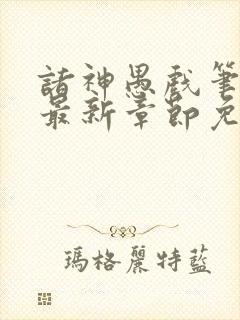 諸神愚戲筆
最新章節免
瑪格麗特藍